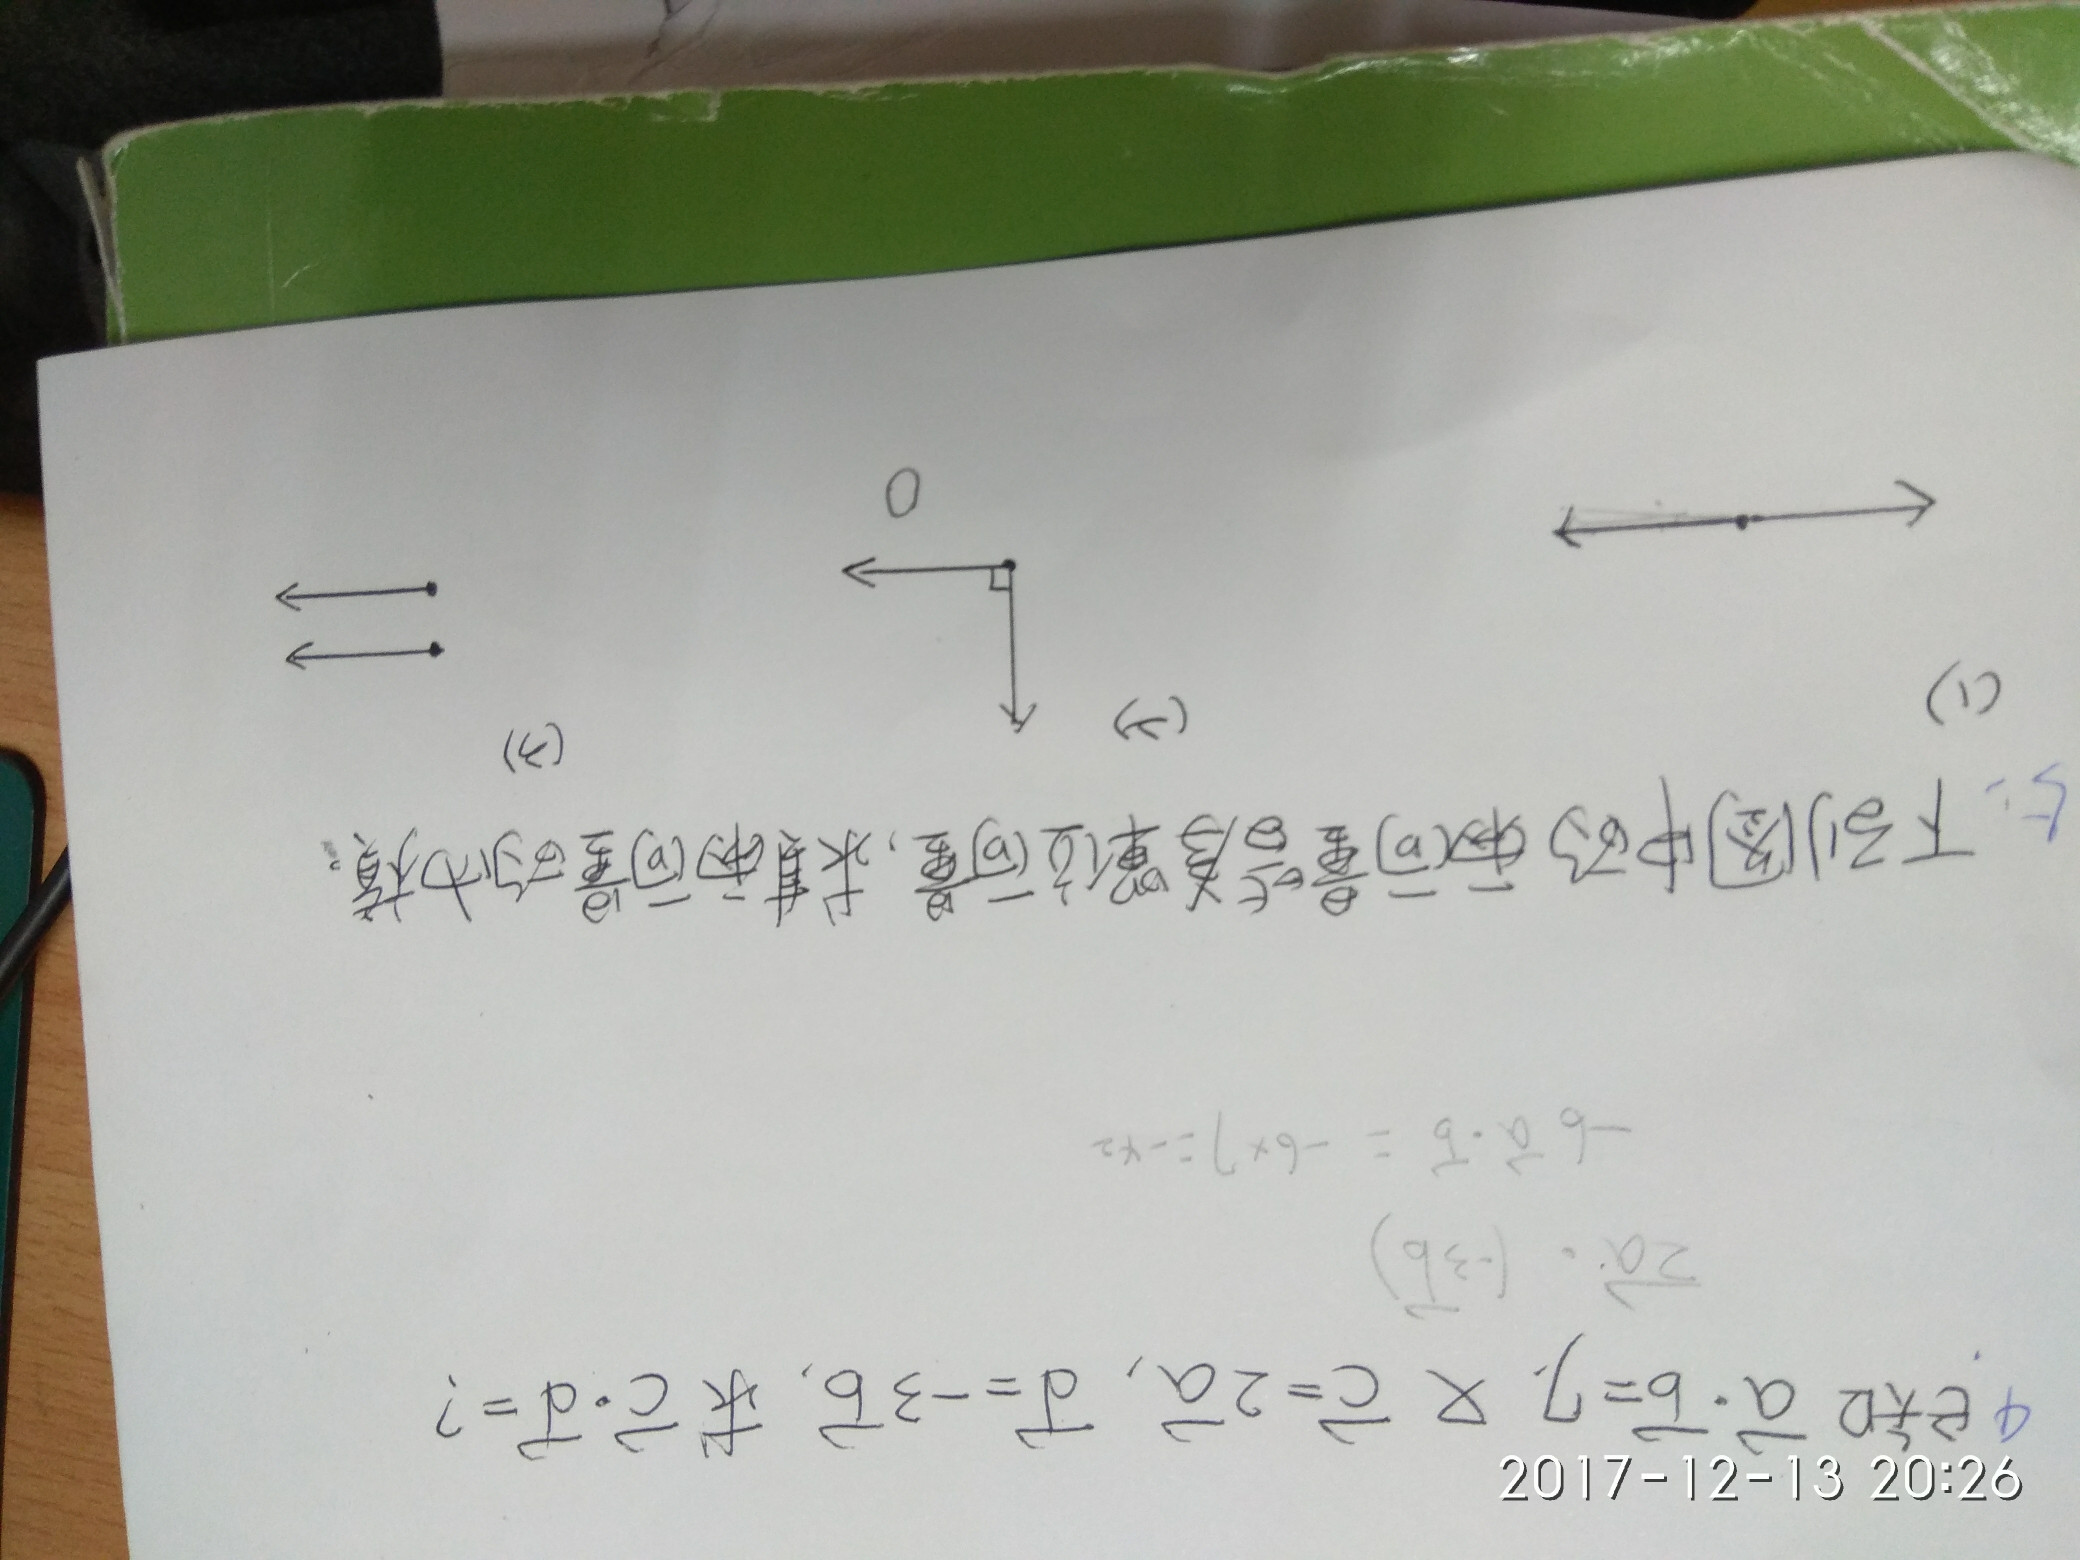 4. 已知 a⃗·b⃗=7, 又 c⃗=2a⃗, d⃗=-3b⃗, 求 c⃗·d⃗=?
2a⃗·(-3b⃗)
-6a⃗·b⃗ = -6×7=-42
5. 下列圖中的二個向量皆為單位向量,求其二個向量的內積。
(1) (2) (3)
0
2017-12-13 20:26